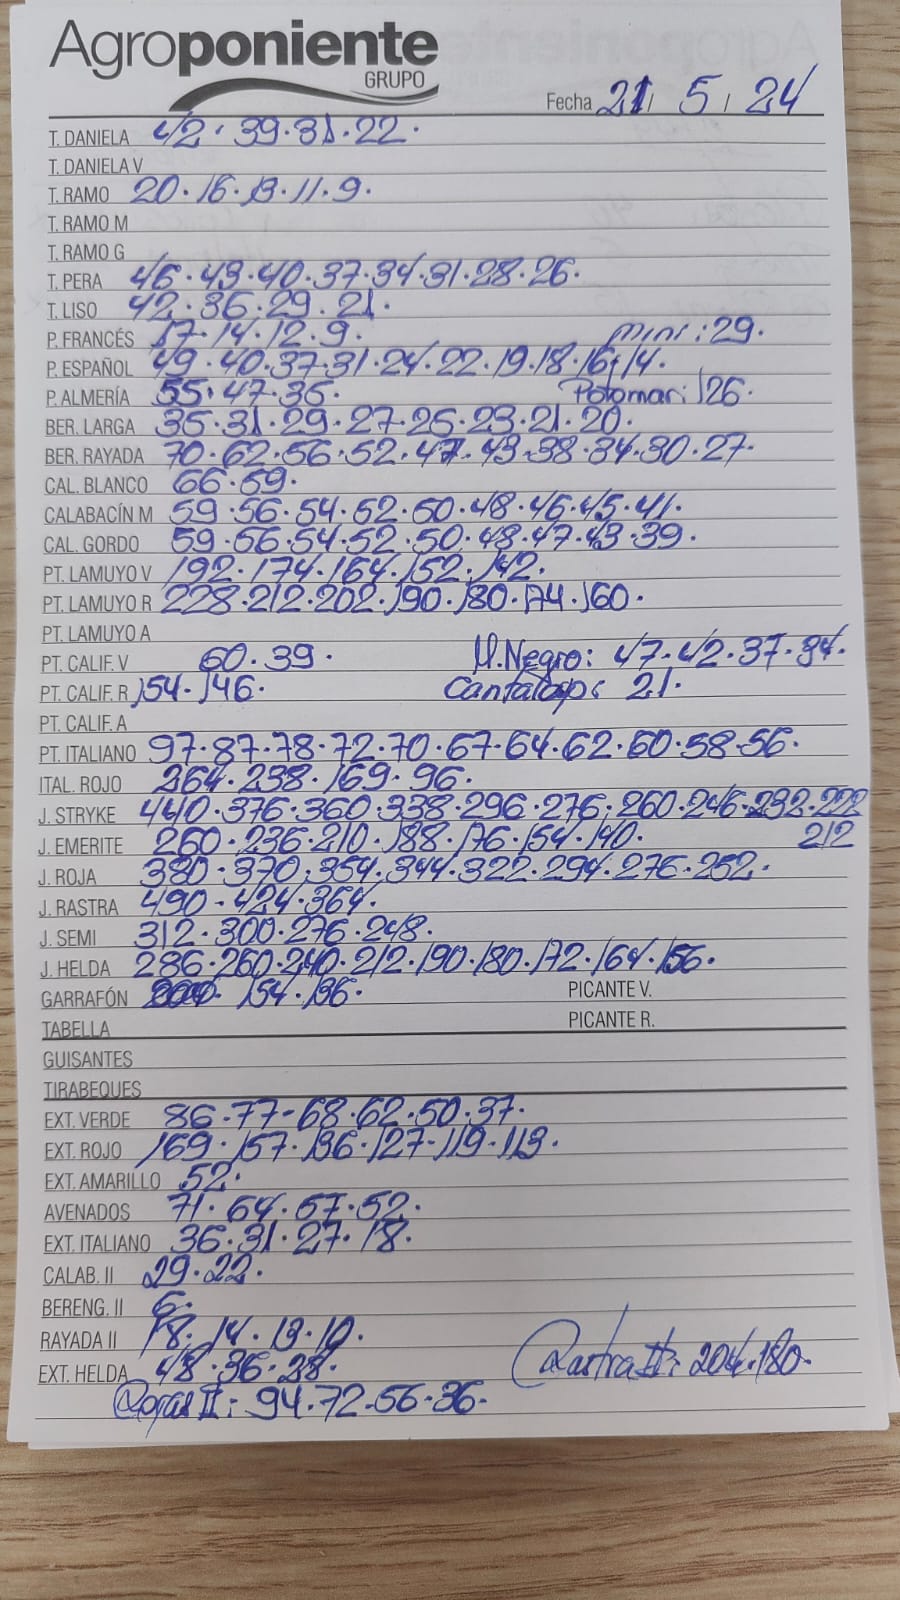 Agroponiente
GRUPO
Fecha 21 / 5 / 24
T. DANIELA 42 · 39 · 31 · 22 ·
T. DANIELA V
T. RAMO 20 · 16 · 13 · 11 · 9 ·
T. RAMO M
T. RAMO G
T. PERA 46 · 43 · 40 · 37 · 34 · 31 · 28 · 26 ·
T. LISO 42 · 36 · 29 · 21 ·
P. FRANCÉS 17 · 14 · 12 · 9 · mini : 29 ·
P. ESPAÑOL 49 · 40 · 37 · 31 · 24 · 22 · 19 · 18 · 16 · 14 ·
P. ALMERÍA 55 · 47 · 35 · Potomari: 126 ·
BER. LARGA 35 · 31 · 29 · 27 · 25 · 23 · 21 · 20 ·
BER. RAYADA 70 · 62 · 56 · 52 · 47 · 43 · 38 · 34 · 30 · 27 ·
CAL. BLANCO 66 · 59 ·
CALABACÍN M 59 · 56 · 54 · 52 · 50 · 48 · 46 · 45 · 41 ·
CAL. GORDO 59 · 56 · 54 · 52 · 50 · 48 · 47 · 43 · 39 ·
PT. LAMUYO V 192 · 174 · 164 · 152 · 142 ·
PT. LAMUYO R 228 · 212 · 202 · 190 · 180 · 174 · 160 ·
PT. LAMUYO A
PT. CALIF. V 60 · 39 · M. Negro: 47 · 42 · 37 · 34 ·
PT. CALIF. R 154 · 146 · Cantalop: 21 ·
PT. CALIF. A
PT. ITALIANO 97 · 87 · 78 · 72 · 70 · 67 · 64 · 62 · 60 · 58 · 56 ·
ITAL. ROJO 264 · 238 · 169 · 96 ·
J. STRYKE 440 · 376 · 360 · 338 · 296 · 276 · 260 · 246 · 232 · 222
212
J. EMERITE 260 · 236 · 210 · 188 · 176 · 154 · 140 ·
J. ROJA 380 · 370 · 354 · 344 · 322 · 294 · 276 · 252 ·
J. RASTRA 490 - 424 · 364 ·
J. SEMI 312 · 300 · 276 · 248 ·
J. HELDA 286 · 260 · 240 · 212 · 190 · 180 · 172 · 164 · 156 ·
GARRAFÓN 154 · 136 · PICANTE V.
TABELLA PICANTE R.
GUISANTES
TIRABEQUES
EXT. VERDE 86 · 77 - 68 · 62 · 50 · 37 ·
EXT. ROJO 169 · 157 · 136 · 127 · 119 · 113 ·
EXT. AMARILLO 52 ·
AVENADOS 71 · 64 · 57 · 52 ·
EXT. ITALIANO 36 · 31 · 27 · 18 ·
CALAB. II 29 · 22 ·
BERENG. II 6 ·
RAYADA II 18 · 14 · 13 · 10 ·
EXT. HELDA 48 · 36 · 28 · Rastra II: 204 · 180 ·
Rojas II : 94 · 72 · 56 · 36 ·